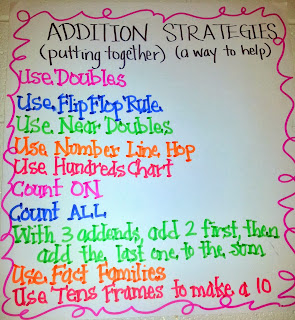 ADDITION STRATEGIES
(putting together) (a way to help)
Use Doubles
Use Flip Flop Rule
Use Near Doubles
Use Number Line Hop
Use Hundreds Chart
Count ON
Count ALL
With 3 addends, add 2 first, then
add the last one to the sum
Use Fact Families
Use Tens Frames to make a 10